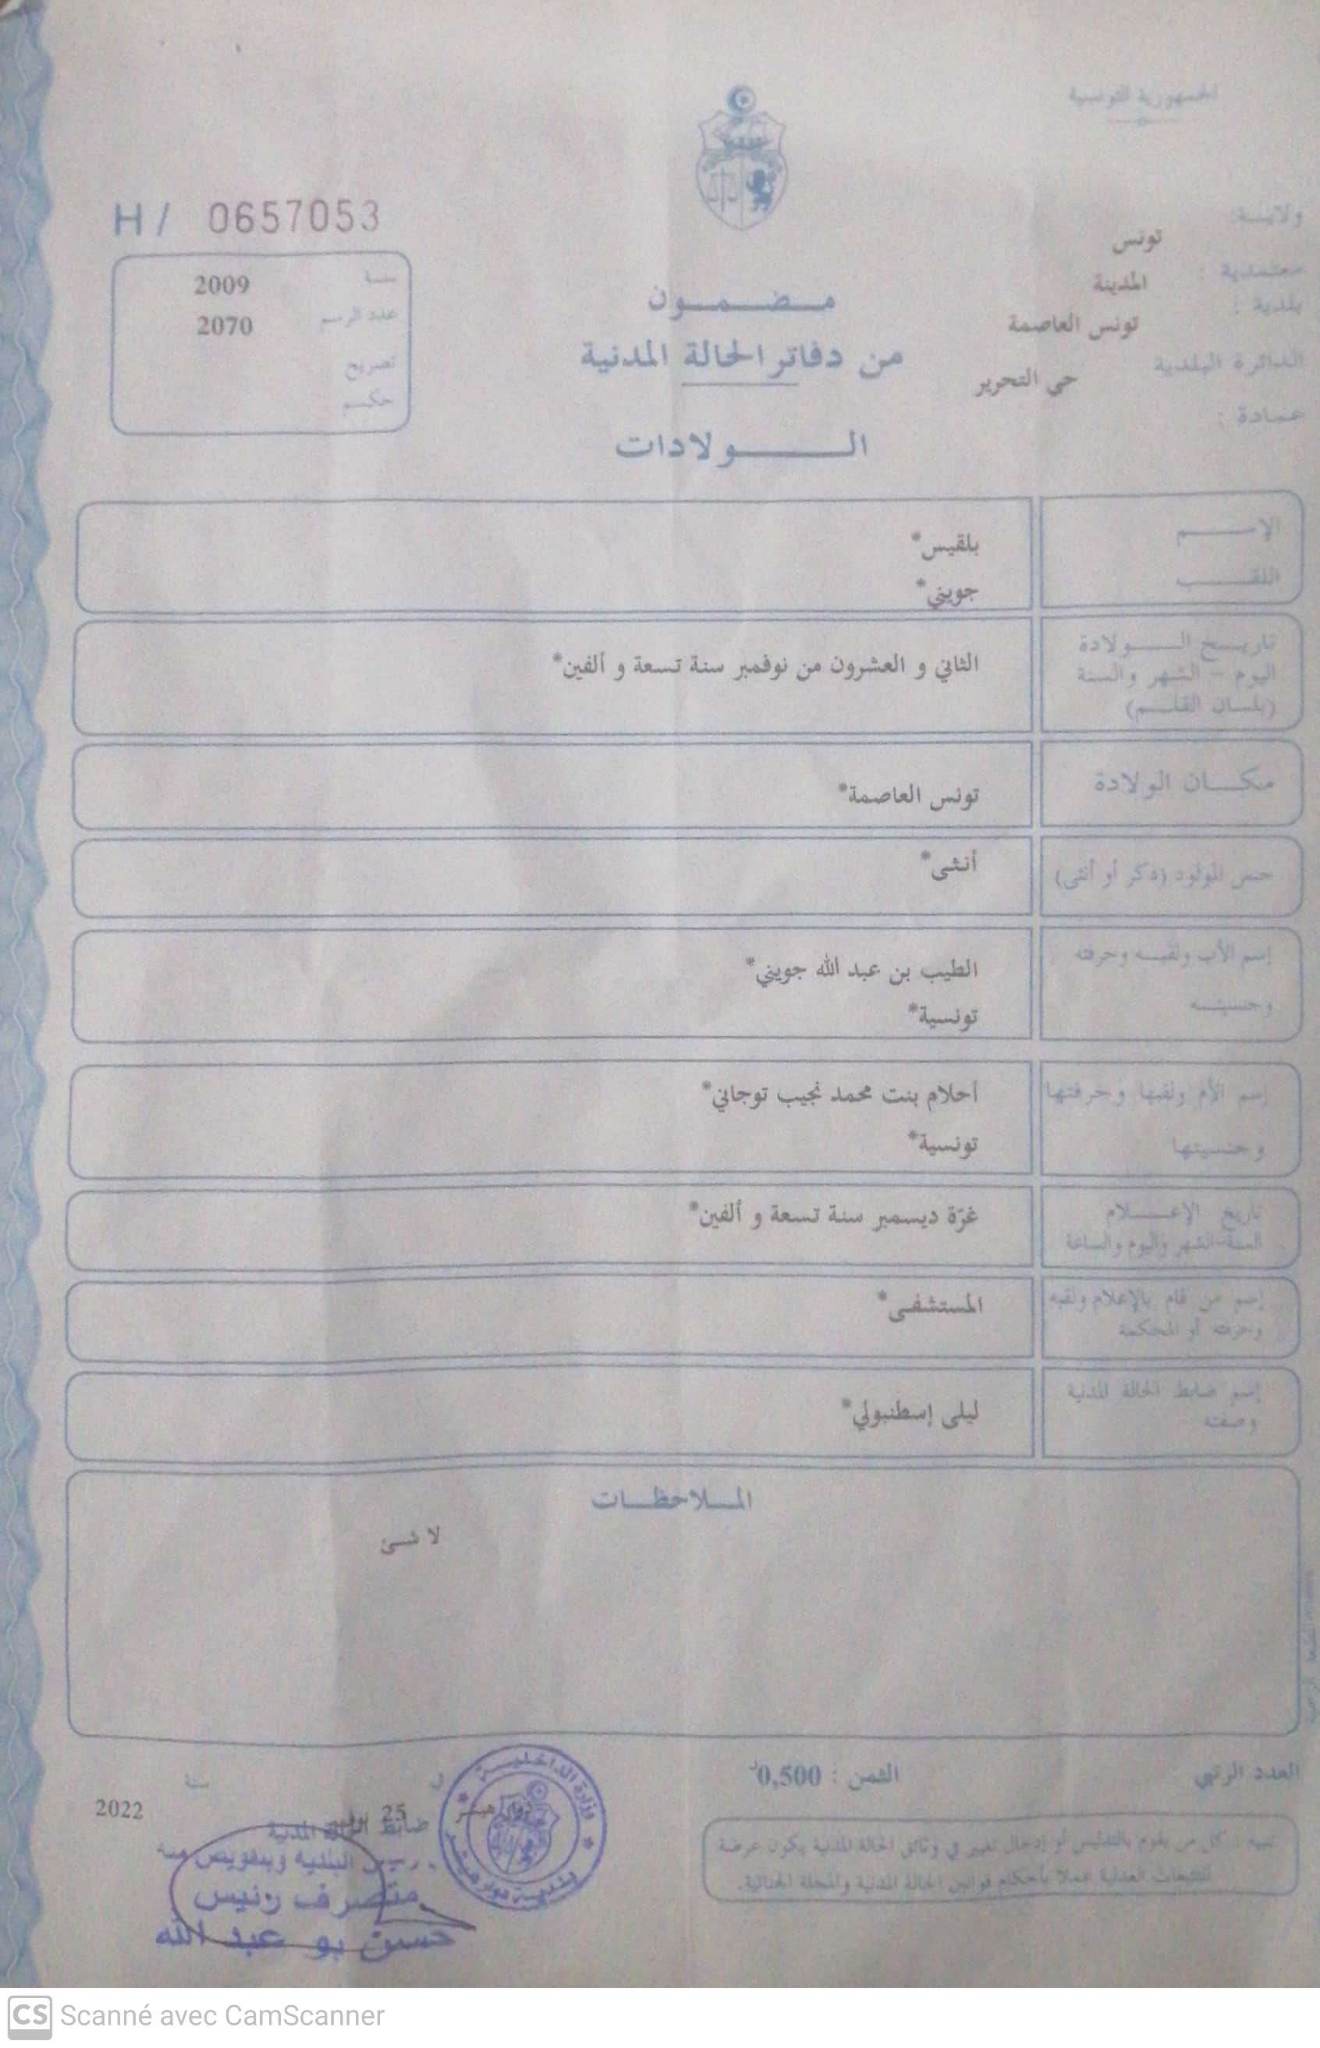 الجمهورية التونسية
ولاية: تونس
معتمدية : المدينة
بلدية : تونس العاصمة
الدائرة البلدية حي التحرير
عمادة :
H / 0657053
سنة 2009
عدد الرسم 2070
تصريح
حكم
مضمون
من دفاتر الحالة المدنية
الولادات
الإسم بلقيس*
اللقب جويني*
تاريخ الولادة
اليوم - الشهر والسنة
(بلسان القلم)
الثاني و العشرون من نوفمبر سنة تسعة و ألفين*
مكان الولادة تونس العاصمة*
جنس المولود (ذكر أو أنثى) أنثى*
إسم الأب ولقبه وحرفته الطيب بن عبد الله جويني*
وجنسيته تونسية*
إسم الأم ولقبها وحرفتها أحلام بنت محمد نجيب توجاني*
وجنسيتها تونسية*
تاريخ الإعلام غرّة ديسمبر سنة تسعة و ألفين*
السنة-الشهر واليوم والساعة
إسم من قام بالإعلام ولقبه المستشفى*
وحرفته أو المحكمة
إسم ضابط الحالة المدنية ليلى إسطنبولي*
وصفته
الملاحظات
لا شئ
العدد الرتبي
الثمن : 0,500
تنبيه : كل من يقوم بالتدليس أو إدخال تغيير في وثائق الحالة المدنية يكون عرضة
للتتبعات العدلية عملا بأحكام قوانين الحالة المدنية والمجلة الجنائية.
وزارة الداخلية
بلدية دوار هيشر
دوار هيشر
في 25
سنة 2022
ضابط الحالة المدنية
رئيس البلدية وبتفويض منه
متصرف رئيس
حسن بو عبد الله
CS Scanné avec CamScanner